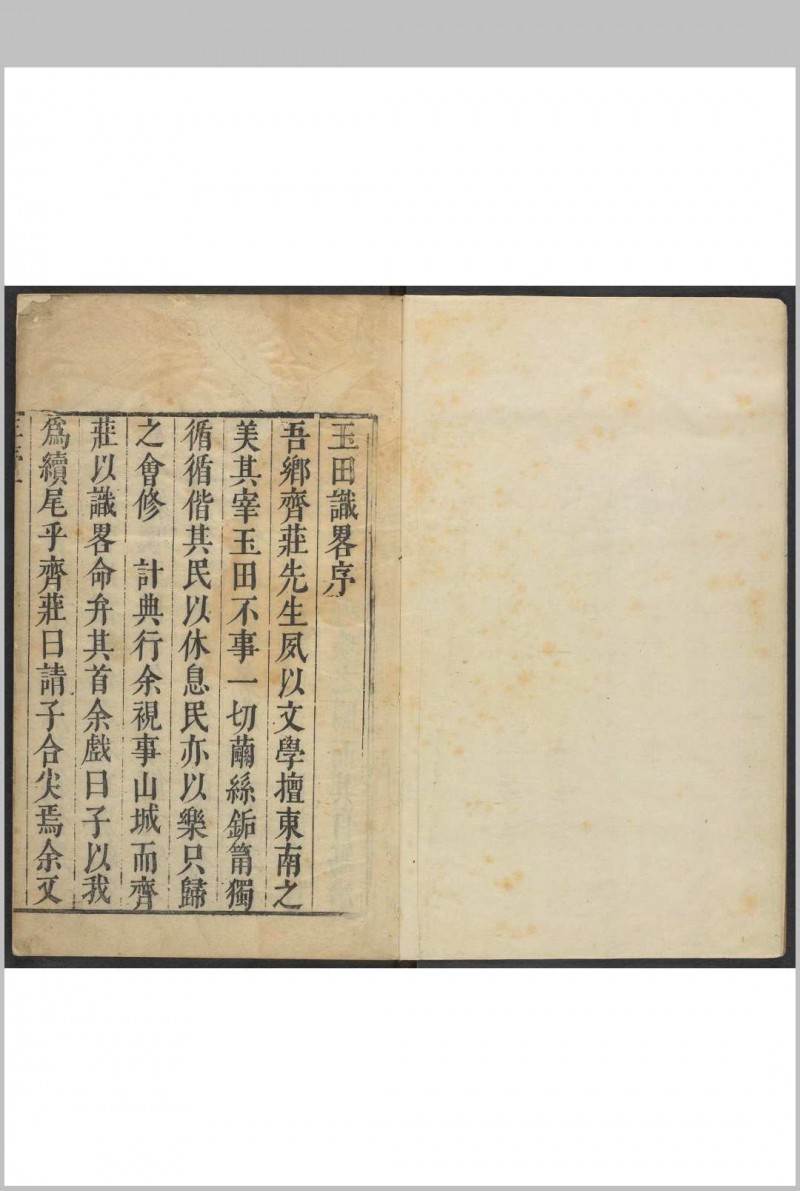 玉田識畧序
吾鄉齊莊先生夙以文學擅東南之
美其宰玉田不事一切繭絲鉐筩獨
循循偕其民以休息民亦以樂只歸
之會修　計典行余視事山城而齊
莊以識畧命弁其首余戲曰子以我
爲續尾乎齊莊曰請子合尖焉余又